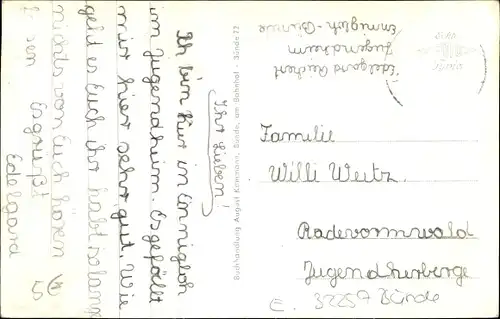 Ihr Lieben!
Ich bin hier in Ennigloh
im Jugendheim. Es gefällt
mir hier sehr gut. Wie
geht es Euch ihr habt so lange
nichts von Euch hören
Es grüßt
Edelgard
Buchhandlung August Klammant, Bünde, am Bahnhof - Bünde 22
Edelgard
Jugendheim
Ennigloh - Bünde
Familie
Willi Weitz
Radevormwald
Jugendherberge
32257 Bünde